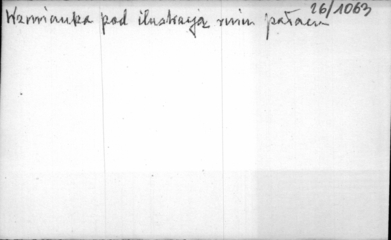 26/1063
Wzmianka pod ilustracją ruin pałacu